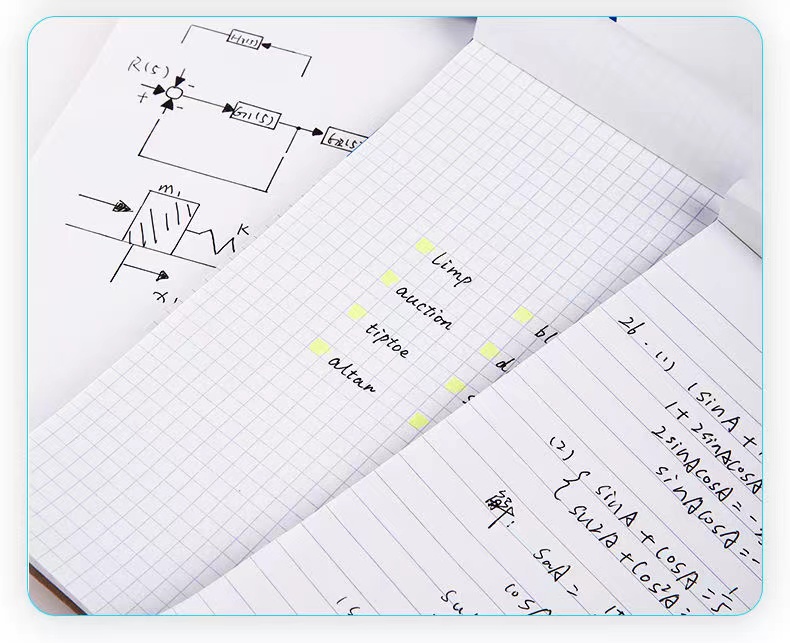 H2(s)
R(s)
-
+
-
G1(s)
G2(s)
m1
K
x1
limp
auction
tiptoe
altar
bl
d
26.(1)
(sinA +
1+2sinAcosA
2sinAcosA = -
sinAcosA = -
(2) { sinA + cosA = 1/5
sin²A + cos²A =
解:
sinA =
cosA